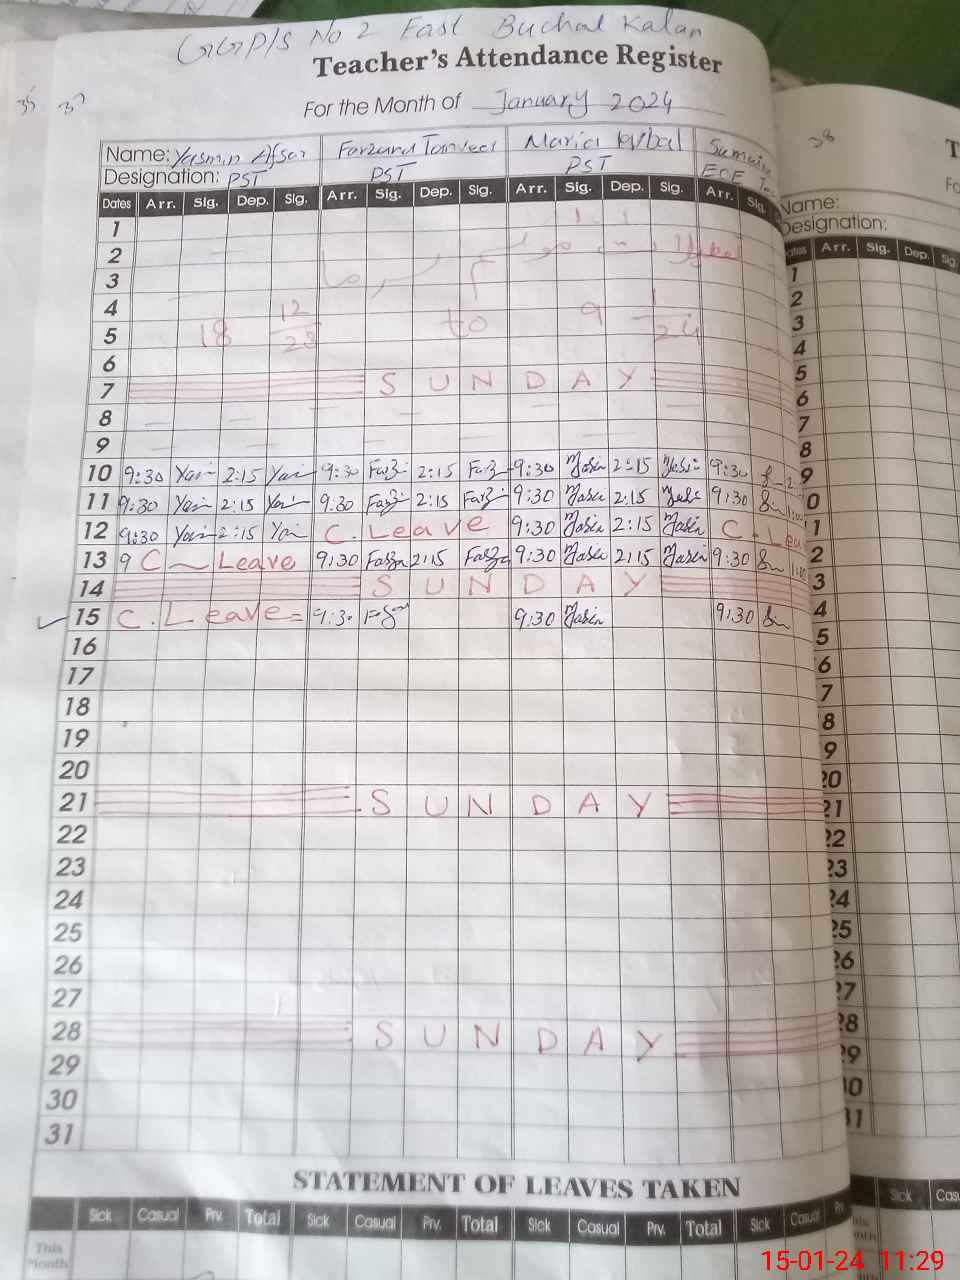 GGP/S No 2 East Buchal Kalan
Teacher's Attendance Register
For the Month of January 2024
35 37
Name: Yasmin Afsar Farzana Tanveer Maria Iqbal Sumaira
Designation: PST PST PST ECE
Dates Arr. Sig. Dep. Sig. Arr. Sig. Dep. Sig. Arr. Sig. Dep. Sig. Arr. Sig.
1
2
3
4
5 18 12/23 to 9 1/24
6
7 SUNDAY
8
9
10 9:30 2:15 9:30 2:15 9:30 2:15 9:30
11 9:30 2:15 9:30 2:15 9:30 2:15 9:30
12 9:30 2:15 C. Leave 9:30 2:15 C. Lea
13 9 C Leave 9:30 2:15 9:30 2:15 9:30
14 SUNDAY
15 C. Leave 9:30 9:30 9:30
16
17
18
19
20
21 SUNDAY
22
23
24
25
26
27
28 SUNDAY
29
30
31
STATEMENT OF LEAVES TAKEN
Sick Casual Prv. Total Sick Casual Prv. Total Sick Casual Prv. Total Sick Casual Prv.
This
Month
38
T
Fo
Name:
Designation:
Dates Arr. Sig. Dep. Sig.
1
2
3
4
5
6
7
8
9
0
1
2
3
4
5
6
7
8
9
20
21
22
23
24
25
26
27
28
29
30
31
Sick Casu
15-01-24 11:29